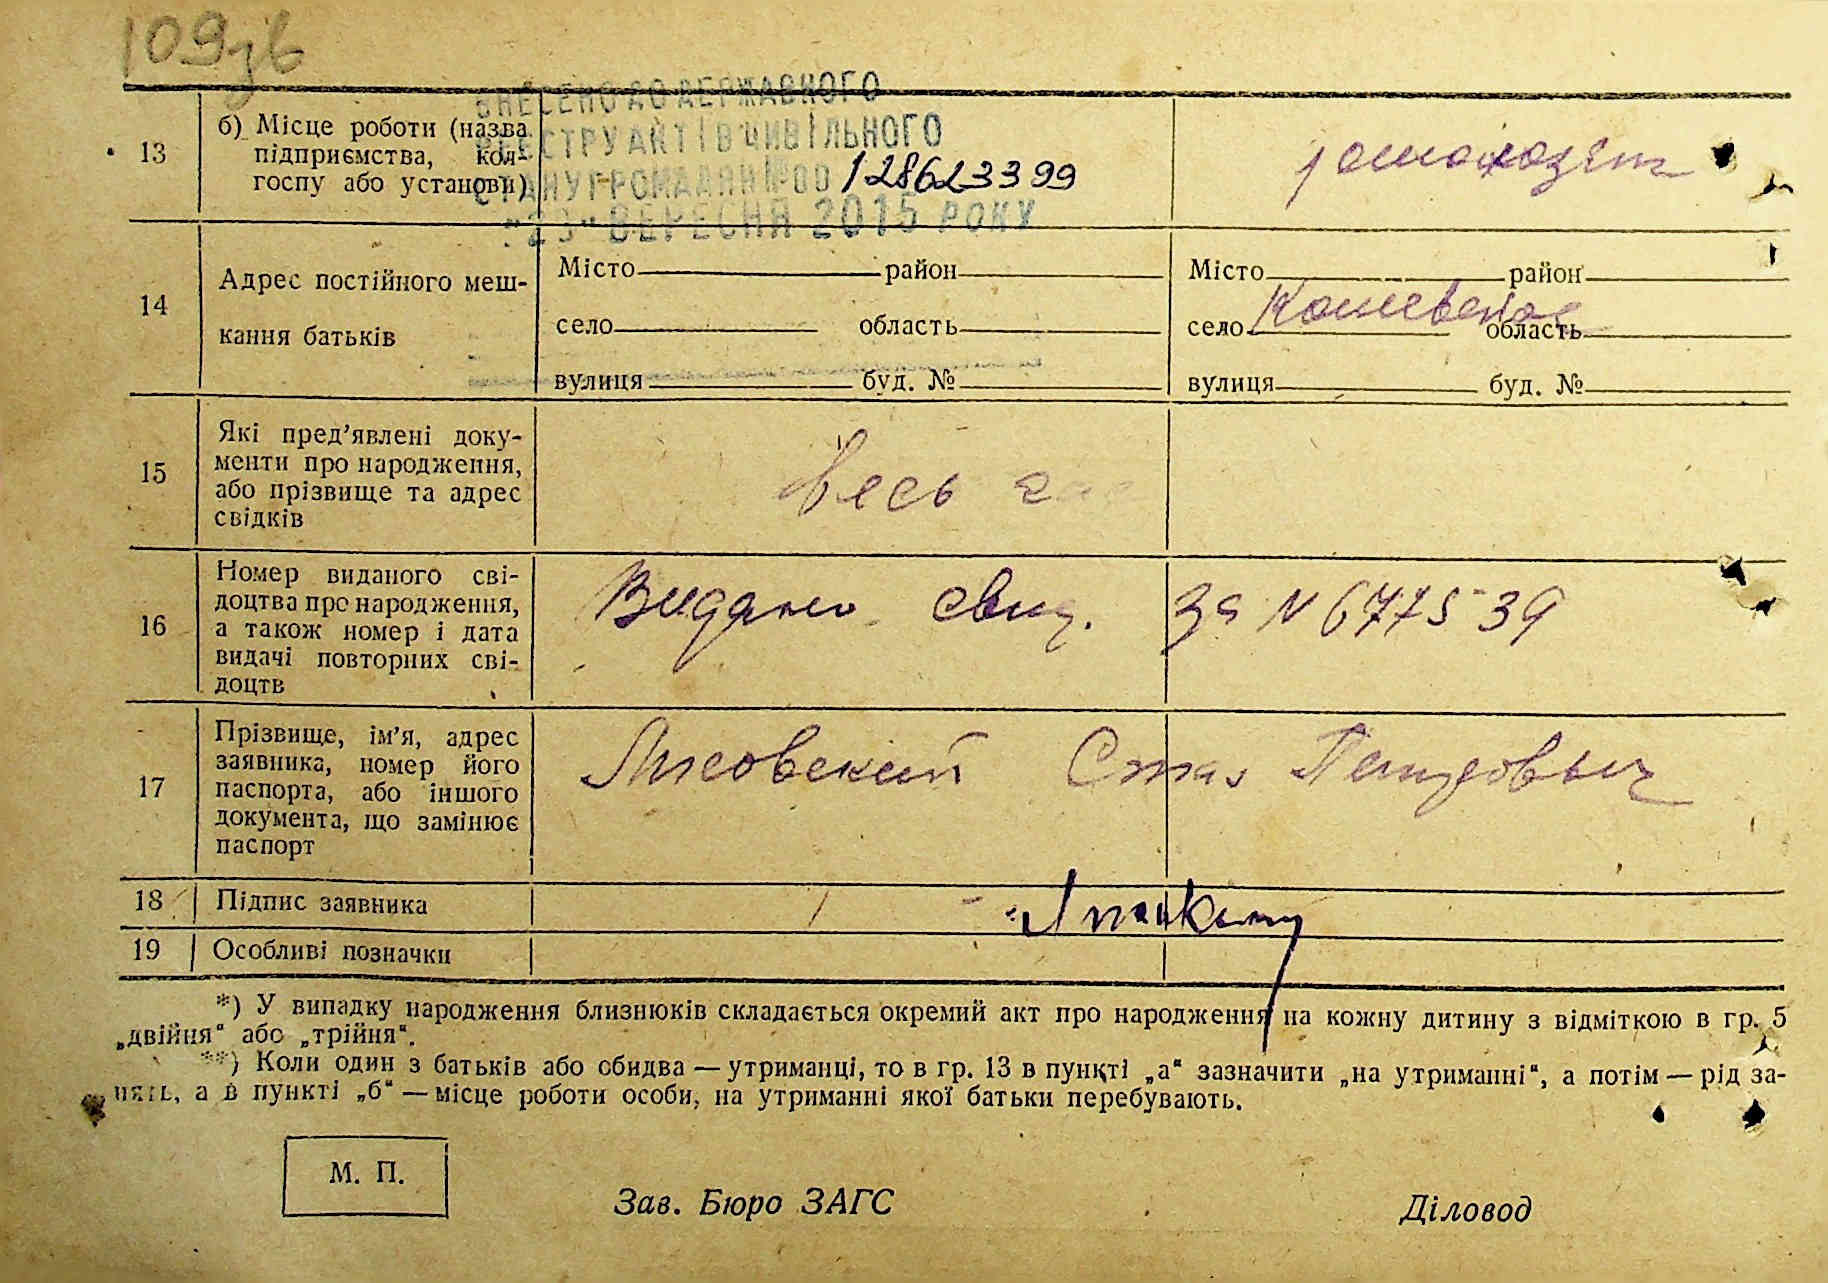 109зв
ВНЕСЕНО ДО ДЕРЖАВНОГО
РЕЄСТРУ АКТІВ ЦИВІЛЬНОГО
СТАНУ ГРОМАДЯН № 00 128623399
"23" ВЕРЕСНЯ 2015 РОКУ
13
б) Місце роботи (назва
підприємства, кол-
госпу або установи)
14
Адрес постійного меш-
кання батьків
Місто район
село область
вулиця буд. №
Місто район
село область
вулиця буд. №
15
Які пред'явлені доку-
менти про народження,
або прізвище та адрес
свідків
весь
16
Номер виданого сві-
доцтва про народження,
а також номер і дата
видачі повторних сві-
доцтв
Видано свид. за N 677539
17
Прізвище, ім'я, адрес
заявника, номер його
паспорта, або іншого
документа, що замінює
паспорт
Лисовский
18
Підпис заявника
19
Особливі позначки
*) У випадку народження близнюків складається окремий акт про народження на кожну дитину з відміткою в гр. 5
„двійня“ або „трійня“.
**) Коли один з батьків або обидва — утриманці, то в гр. 13 в пункті „а“ зазначити „на утриманні“, а потім — рід за-
нять, а в пункті „б“ — місце роботи особи, на утриманні якої батьки перебувають.
М. П.
Зав. Бюро ЗАГС
Діловод